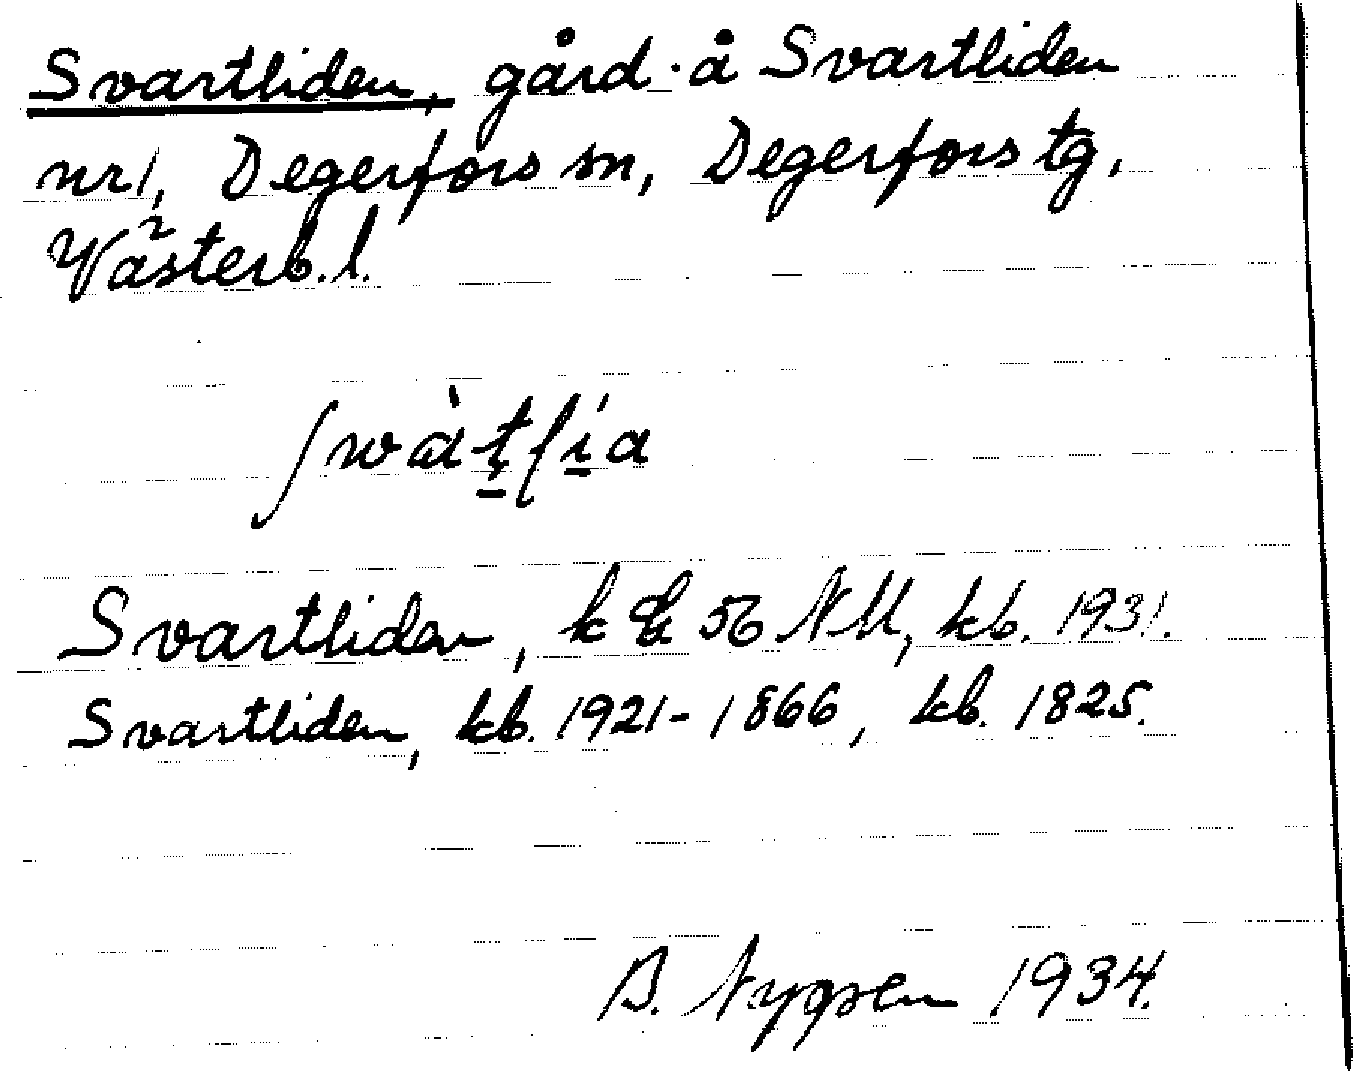 Svartliden, gård å Svartliden
nr 1, Degerfors sn, Degerfors tg,
Västerb. l.
Svartliden, k 56 NU, kb. 1931.
Svartliden, kb. 1921-1866, kb. 1825.
B. Nygren 1934.